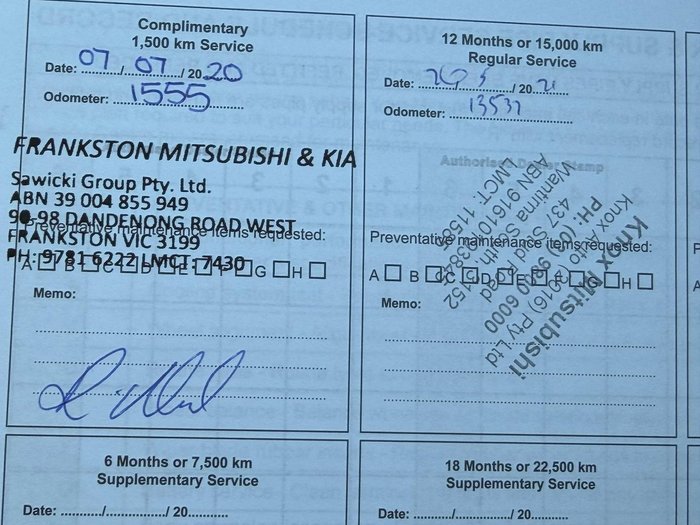 Complimentary
1,500 km Service
Date: 07/07/2020
Odometer: 1555
FRANKSTON MITSUBISHI & KIA
Sawicki Group Pty. Ltd.
ABN 39 004 855 949
90-98 DANDENONG ROAD WEST
Preventative maintenance items requested:
FRANKSTON VIC 3199
PH: 9781 6222 LMCT: 7430
A B C D E F G H
Memo:
12 Months or 15,000 km
Regular Service
Date: / 20 21
Odometer: 13531
Knox Mitsubishi
Knox Auto (2016) Pty Ltd
PH: (03) 9800 6000
437
Wantirna South
ABN 916
LMCT: 115
Preventative maintenance items requested:
A B C D E F G H
Memo:
6 Months or 7,500 km
Supplementary Service
Date: ........../........../ 20..........
18 Months or 22,500 km
Supplementary Service
Date: ........../........../ 20..........